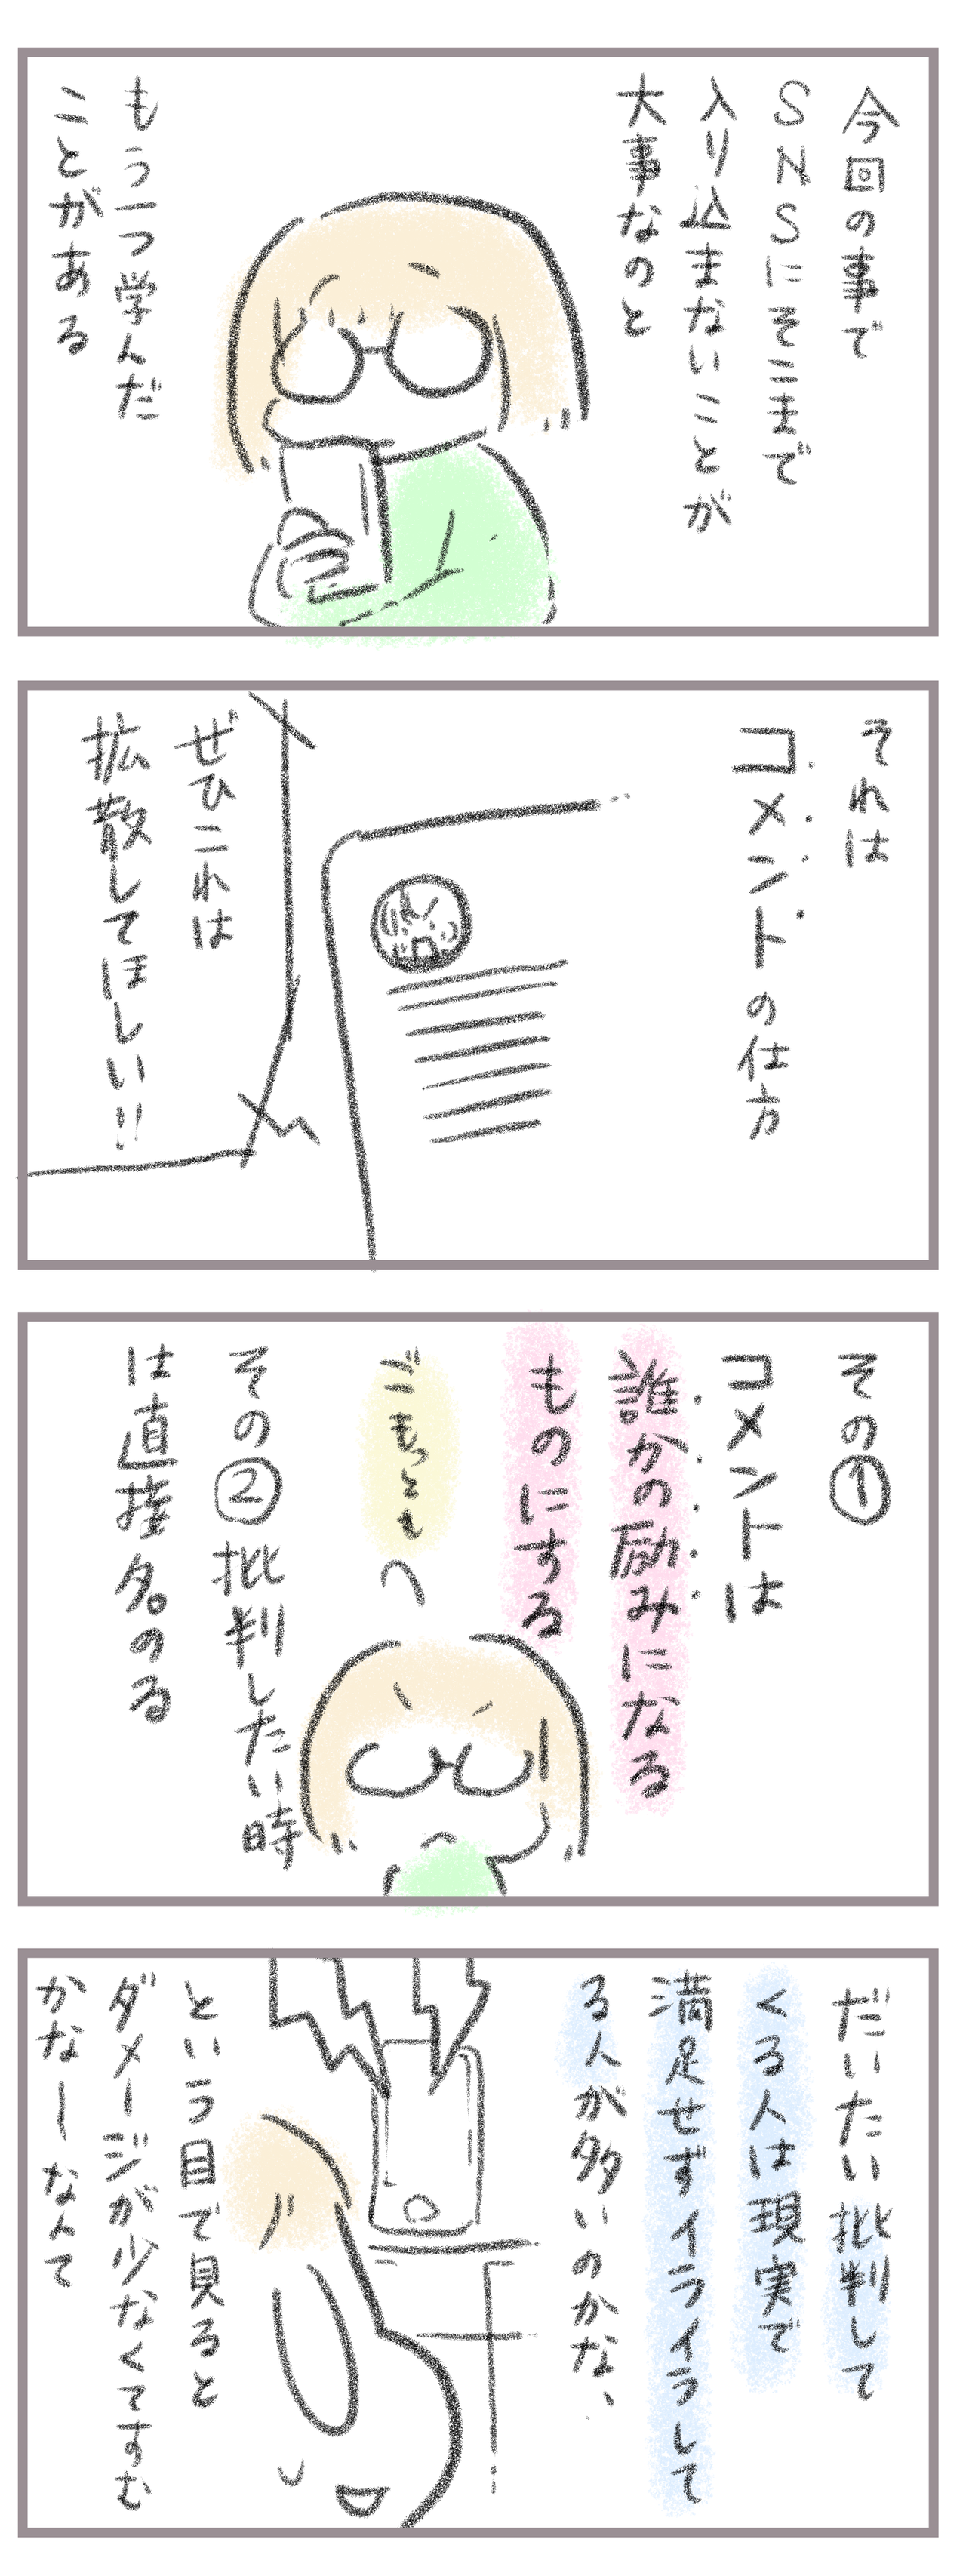 今回の事で
SNSにそこまで
入り込まないことが
大事なのと
もう一つ学んだ
ことがある
それは
コメントの仕方
ぜひこれは
拡散してほしい!!
その①
コメントは
誰かの励みになる
ものにする
ごもっともへ
その②批判したい時
は直接名のる
だいたい批判して
くる人は現実で
満足せずイライラして
る人が多いのかな、
という目で見ると
ダメージが少なくてすむ
かなーなんて